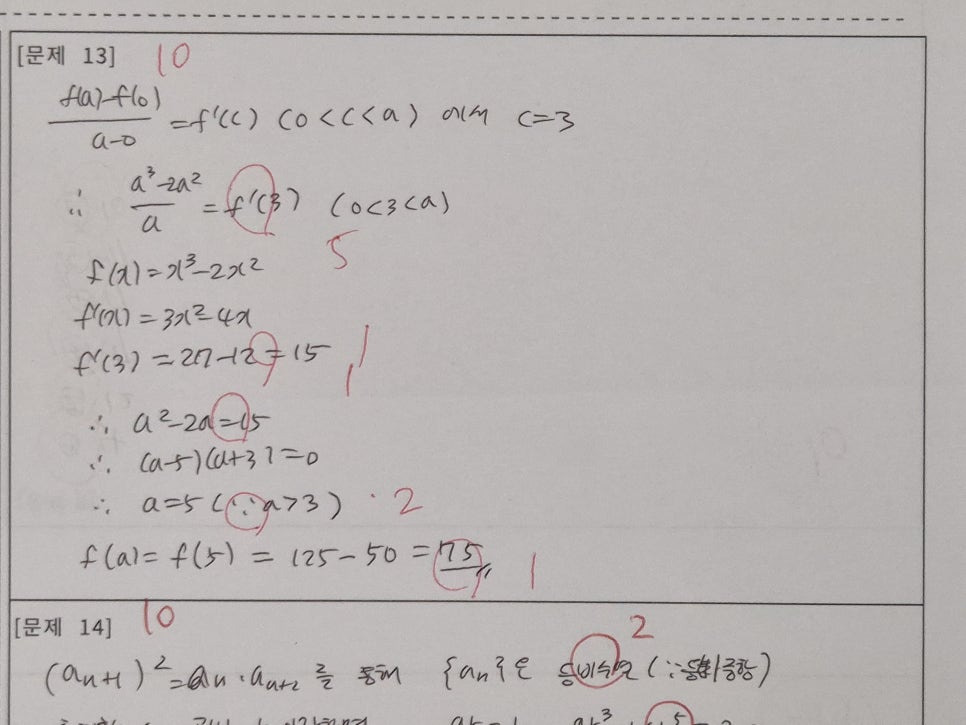 [문제 13] 10
f(a)-f(0) / a-0 = f'(c) (0<c<a) 에서 c=3
∴ a³-2a² / a = f'(3) (0<3<a)
5
f(x)=x³-2x²
f'(x)=3x²-4x
f'(3)=27-12=15 1
1
∴ a²-2a=15
∴ (a-5)(a+3)=0
∴ a=5 (∵a>3) 2
f(a)=f(5)=125-50=75 1
[문제 14] 10
2
(an+1)²=an·an+2 를 통해 {an}은 등비수열 (∵등비중항)